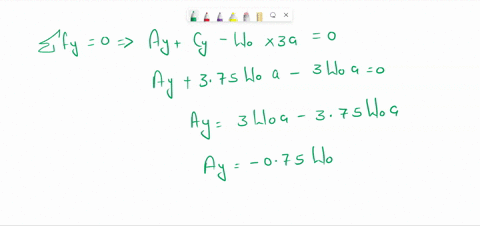 Σfy = 0 => Ay + Cy - W₀ × 3a = 0
Ay + 3.75 W₀ a - 3 W₀ a = 0
Ay = 3 W₀ a - 3.75 W₀ a
Ay = -0.75 W₀